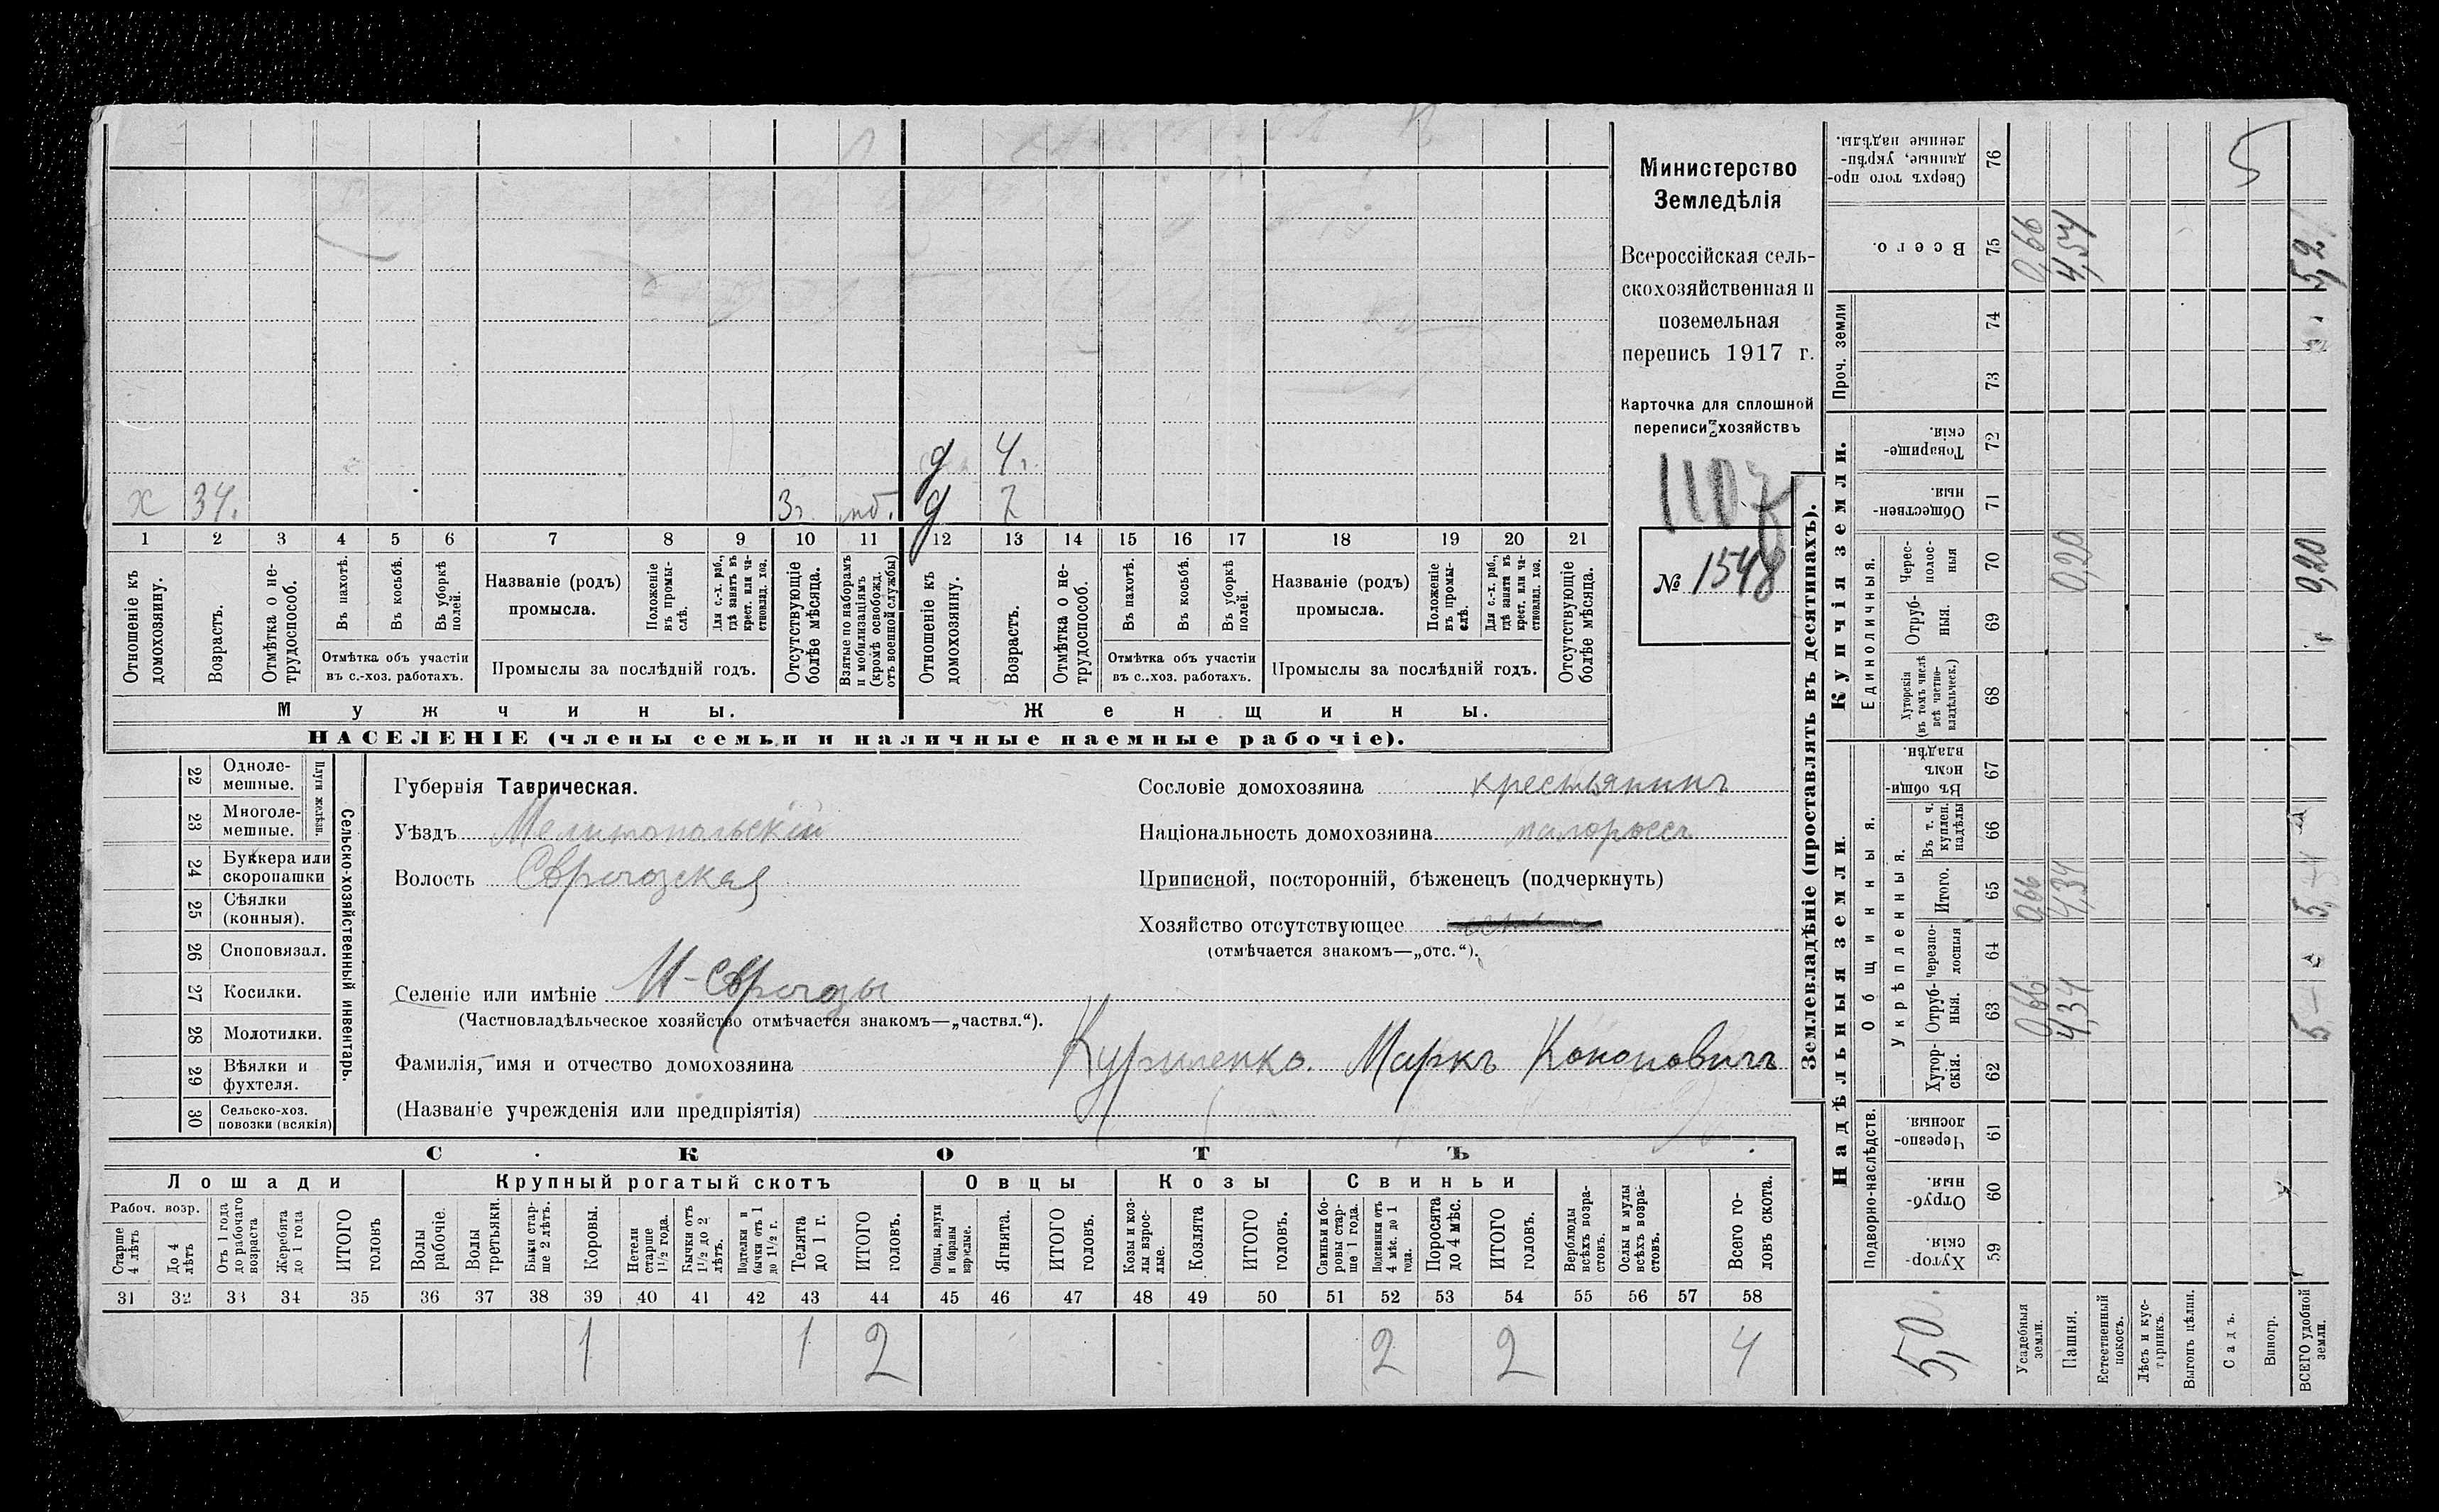 Министерство
Земледѣлія
Всероссійская сель-
скохозяйственная и
поземельная
перепись 1917 г.
Карточка для сплошной
переписи хозяйствъ
1107
№ 1548
х 34. 3г. моб.
д 4г.
д 7
1 2 3 4 5 6 7 8 9 10 11 12 13 14 15 16 17 18 19 20 21
Отношеніе къ домохозяину.
Возрастъ.
Отмѣтка о не-трудоспособ.
Въ пахотѣ.
Въ косьбѣ.
Въ уборкѣ полей.
Отмѣтка объ участіи
въ с.-хоз. работахъ.
Названіе (родъ)
промысла.
Положеніе въ промы-слѣ.
Для с.-х. раб., гдѣ занятъ въ крест. или ча-стновлад. хоз.
Промыслы за послѣдній годъ.
Отсутствующіе болѣе мѣсяца.
Взятые по наборамъ и мобилизаціямъ (кромѣ освобожд. отъ военной службы)
Отношеніе къ домохозяину.
Возрастъ.
Отмѣтка о не-трудоспособ.
Въ пахотѣ.
Въ косьбѣ.
Въ уборкѣ полей.
Отмѣтка объ участіи
въ с..хоз. работахъ.
Названіе (родъ)
промысла.
Положеніе въ промы-слѣ.
Для с.-х. раб., гдѣ занята въ крест. или ча-стновлад. хоз.
Промыслы за послѣдній годъ.
Отсутствующіе болѣе мѣсяца.
Мужчины.
Женщины.
НАСЕЛЕНІЕ (члены семьи и наличные наемные рабочіе).
22 Одноле-мешные.
23 Многоле-мешные.
Плуги желѣзн.
24 Буккера или скоропашки
25 Сѣялки (конныя).
26 Сноповязал.
27 Косилки.
28 Молотилки.
29 Вѣялки и фухтеля.
30 Сельско-хоз. повозки (всякія)
Сельско-хозяйственный инвентарь.
Губернія Таврическая.
Уѣздъ Мелитопольскій
Волость Сѣрогозская
Селеніе или имѣніе Н-Сѣрогозы
(Частновладѣльческое хозяйство отмѣчается знакомъ—„частвл.“).
Фамилія, имя и отчество домохозяина Куриленко. Маркъ Кононовичъ
(Названіе учрежденія или предпріятія)
Сословіе домохозяина крестьянинъ
Національность домохозяина малороссъ
Приписной, посторонній, бѣженецъ (подчеркнуть)
Хозяйство отсутствующее
(отмѣчается знакомъ—„отс.“).
СКОТЪ
Лошади
Крупный рогатый скотъ
Овцы
Козы
Свиньи
Рабоч. возр.
Старше 4 лѣтъ
До 4 лѣтъ
Отъ 1 года до рабочаго возраста
Жеребята до 1 года
ИТОГО головъ
Волы рабочіе.
Волы третьяки.
Быки стар-ше 2 лѣтъ.
Коровы.
Нетели старше 1½ года.
Бычки отъ 1½ до 2 лѣтъ.
Подтелки и бычки отъ 1 до 1½ г.
Телята до 1 г.
ИТОГО головъ.
Овцы, валухи и бараны взрослые.
Ягнята.
ИТОГО головъ.
Козы и коз-лы взрос-лые.
Козлята
ИТОГО головъ.
Свиньи и бо-ровы стар-ше 1 года.
Подсвинки отъ 4 мѣс. до 1 года.
Поросята до 4 мѣс.
ИТОГО головъ.
Верблюды всѣхъ возра-стовъ.
Ослы и мулы всѣхъ возра-стовъ.
Всего го-ловъ скота.
31 32 33 34 35 36 37 38 39 40 41 42 43 44 45 46 47 48 49 50 51 52 53 54 55 56 57 58
1 1 2 2 2 4
Землевладѣніе (проставлять въ десятинахъ).
Надѣльныя земли.
Купчія земли.
Проч. земли
Подворно-наслѣдств.
Общинныя.
Укрѣпленныя.
Единоличныя.
Хутор-скія. 59
Отруб-ныя. 60
Черезпо-лосныя 61
Хутор-скія. 62
Отруб-ныя. 63
черезпо-лосныя 64
Итого. 65
Въ т. ч. куплен. надѣлы 66
Въ общин-номъ владѣн. 67
Хуторскія (въ томъ числѣ всѣ частно-владѣльческ.) 68
Отруб-ныя. 69
Черес-полос-ныя 70
Обществен-ныя. 71
Товарище-скія. 72
73
74
Всего. 75
Сверхъ того про-данные, укрѣп-ленные надѣлы. 76
5,0.
Усадебныя земли. 0,66 0,66 0,66
Пашня. 4,34 4,34 0,20 4,54
Естественный покосъ.
Лѣсъ и кус-тарникъ.
Выгонъ цѣлин.
Садъ. 5
Виногр.
ВСЕГО удобной земли. 5 – 5, – 0,20 5,2